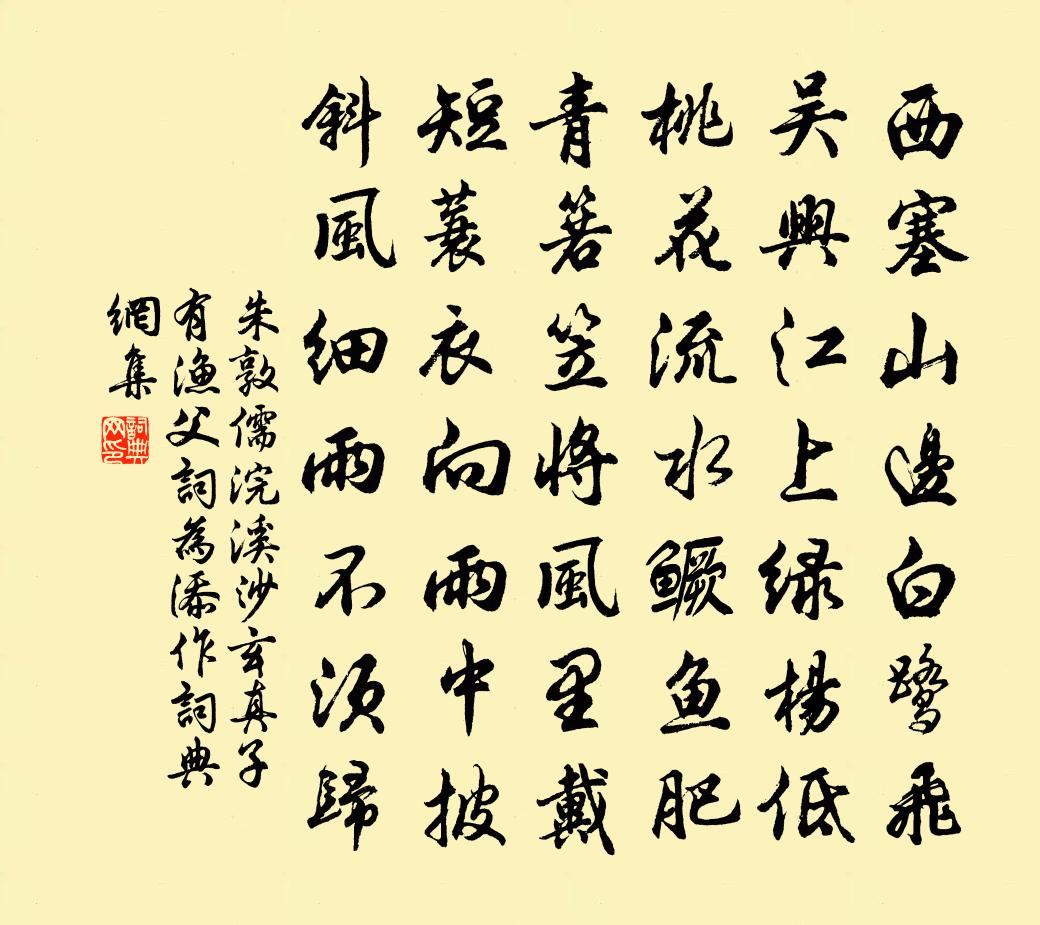 西塞山邊白鷺飛
吴興江上緑楊低
桃花流水鱖鱼肥
青箬笠將風里戴
短蓑衣向雨中披
斜風細雨不須歸
朱敦儒浣溪沙玄真子
有漁父詞為添作詞典
網集
詞典
网印